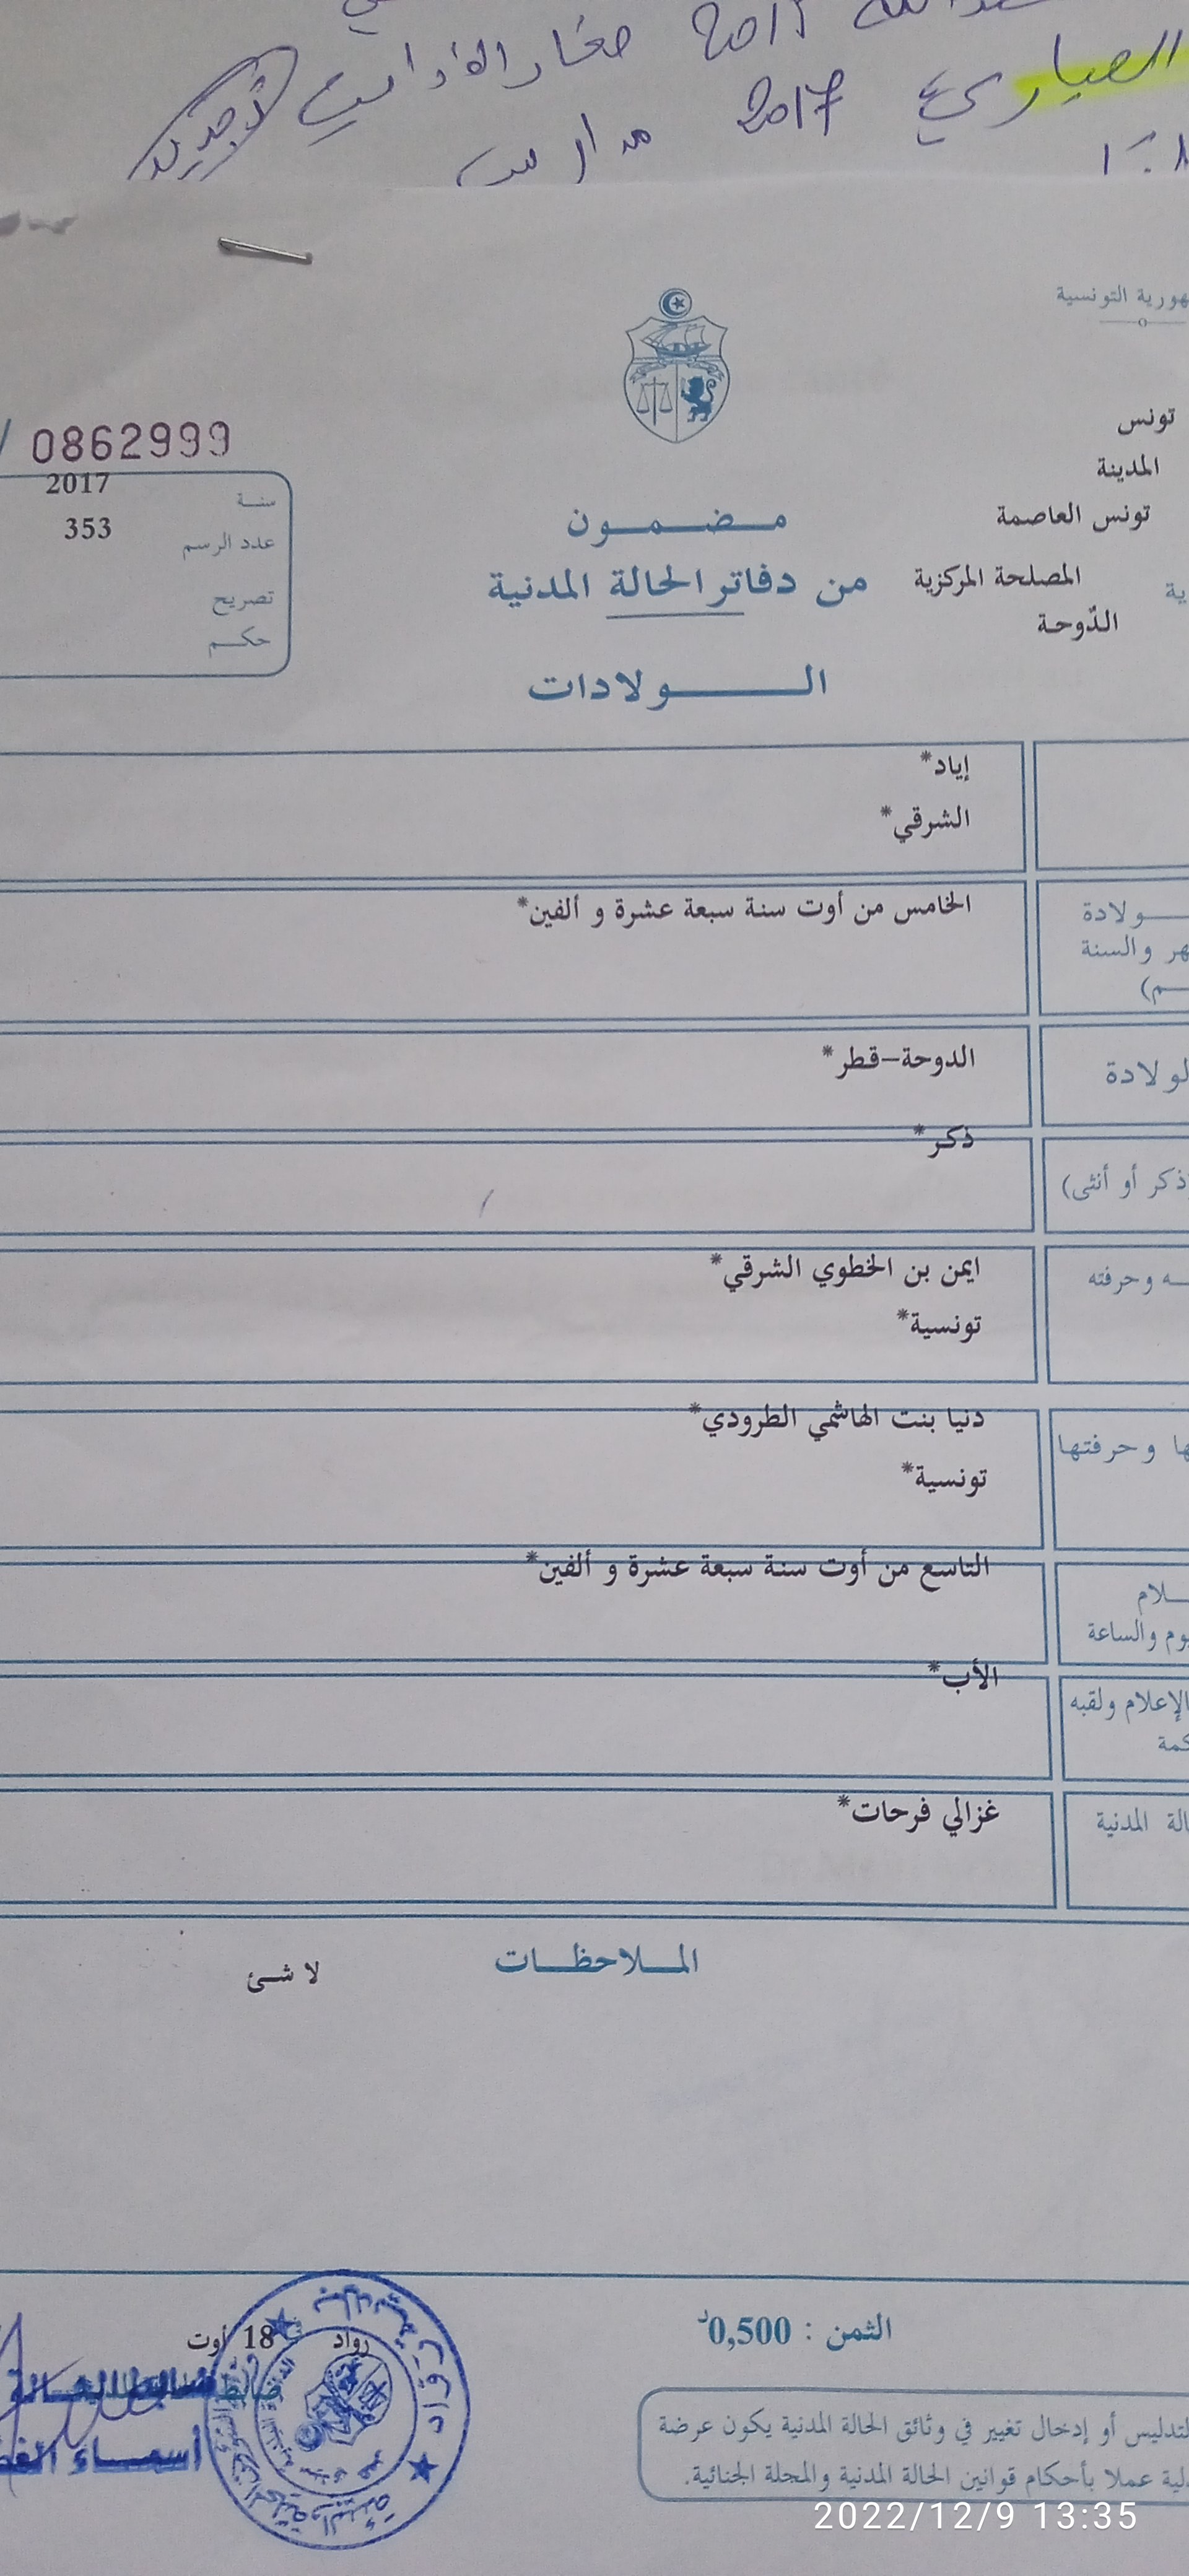 2017 صغار الأوانس
العياري 2017 مدارس
الجمهورية التونسية
تونس
المدينة
تونس العاصمة
المصلحة المركزية
الدّوحة
0862999
سنة 2017
عدد الرسم 353
تصريح
حكم
مضمون
من دفاتر الحالة المدنية
الولادات
إياد*
الشرقي*
ولادة
الخامس من أوت سنة سبعة عشرة و ألفين*
والسنة
الدوحة-قطر*
ذكر*
ذكر أو أنثى)
ايمن بن الخطوي الشرقي*
وحرفته
تونسية*
دنيا بنت الهاشمي الطرودي*
وحرفتها
تونسية*
التاسع من أوت سنة سبعة عشرة و ألفين*
والساعة
الأب*
الإعلام ولقبه
غزالي فرحات*
المدنية
الملاحظات
لا شئ
الثمن : 0,500د
رواد 18 أوت
التدليس أو إدخال تغيير في وثائق الحالة المدنية يكون عرضة
عملا بأحكام قوانين الحالة المدنية والمجلة الجنائية.
2022/12/9 13:35